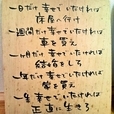 一日だけ幸せでいたければ
床屋へ行け
一週間だけ幸せでいたければ
車を買え
一ヶ月だけ幸せでいたければ
結婚をしろ
一年だけ幸せでいたければ
家を買え
一生幸せでいたければ
正直に生きろ